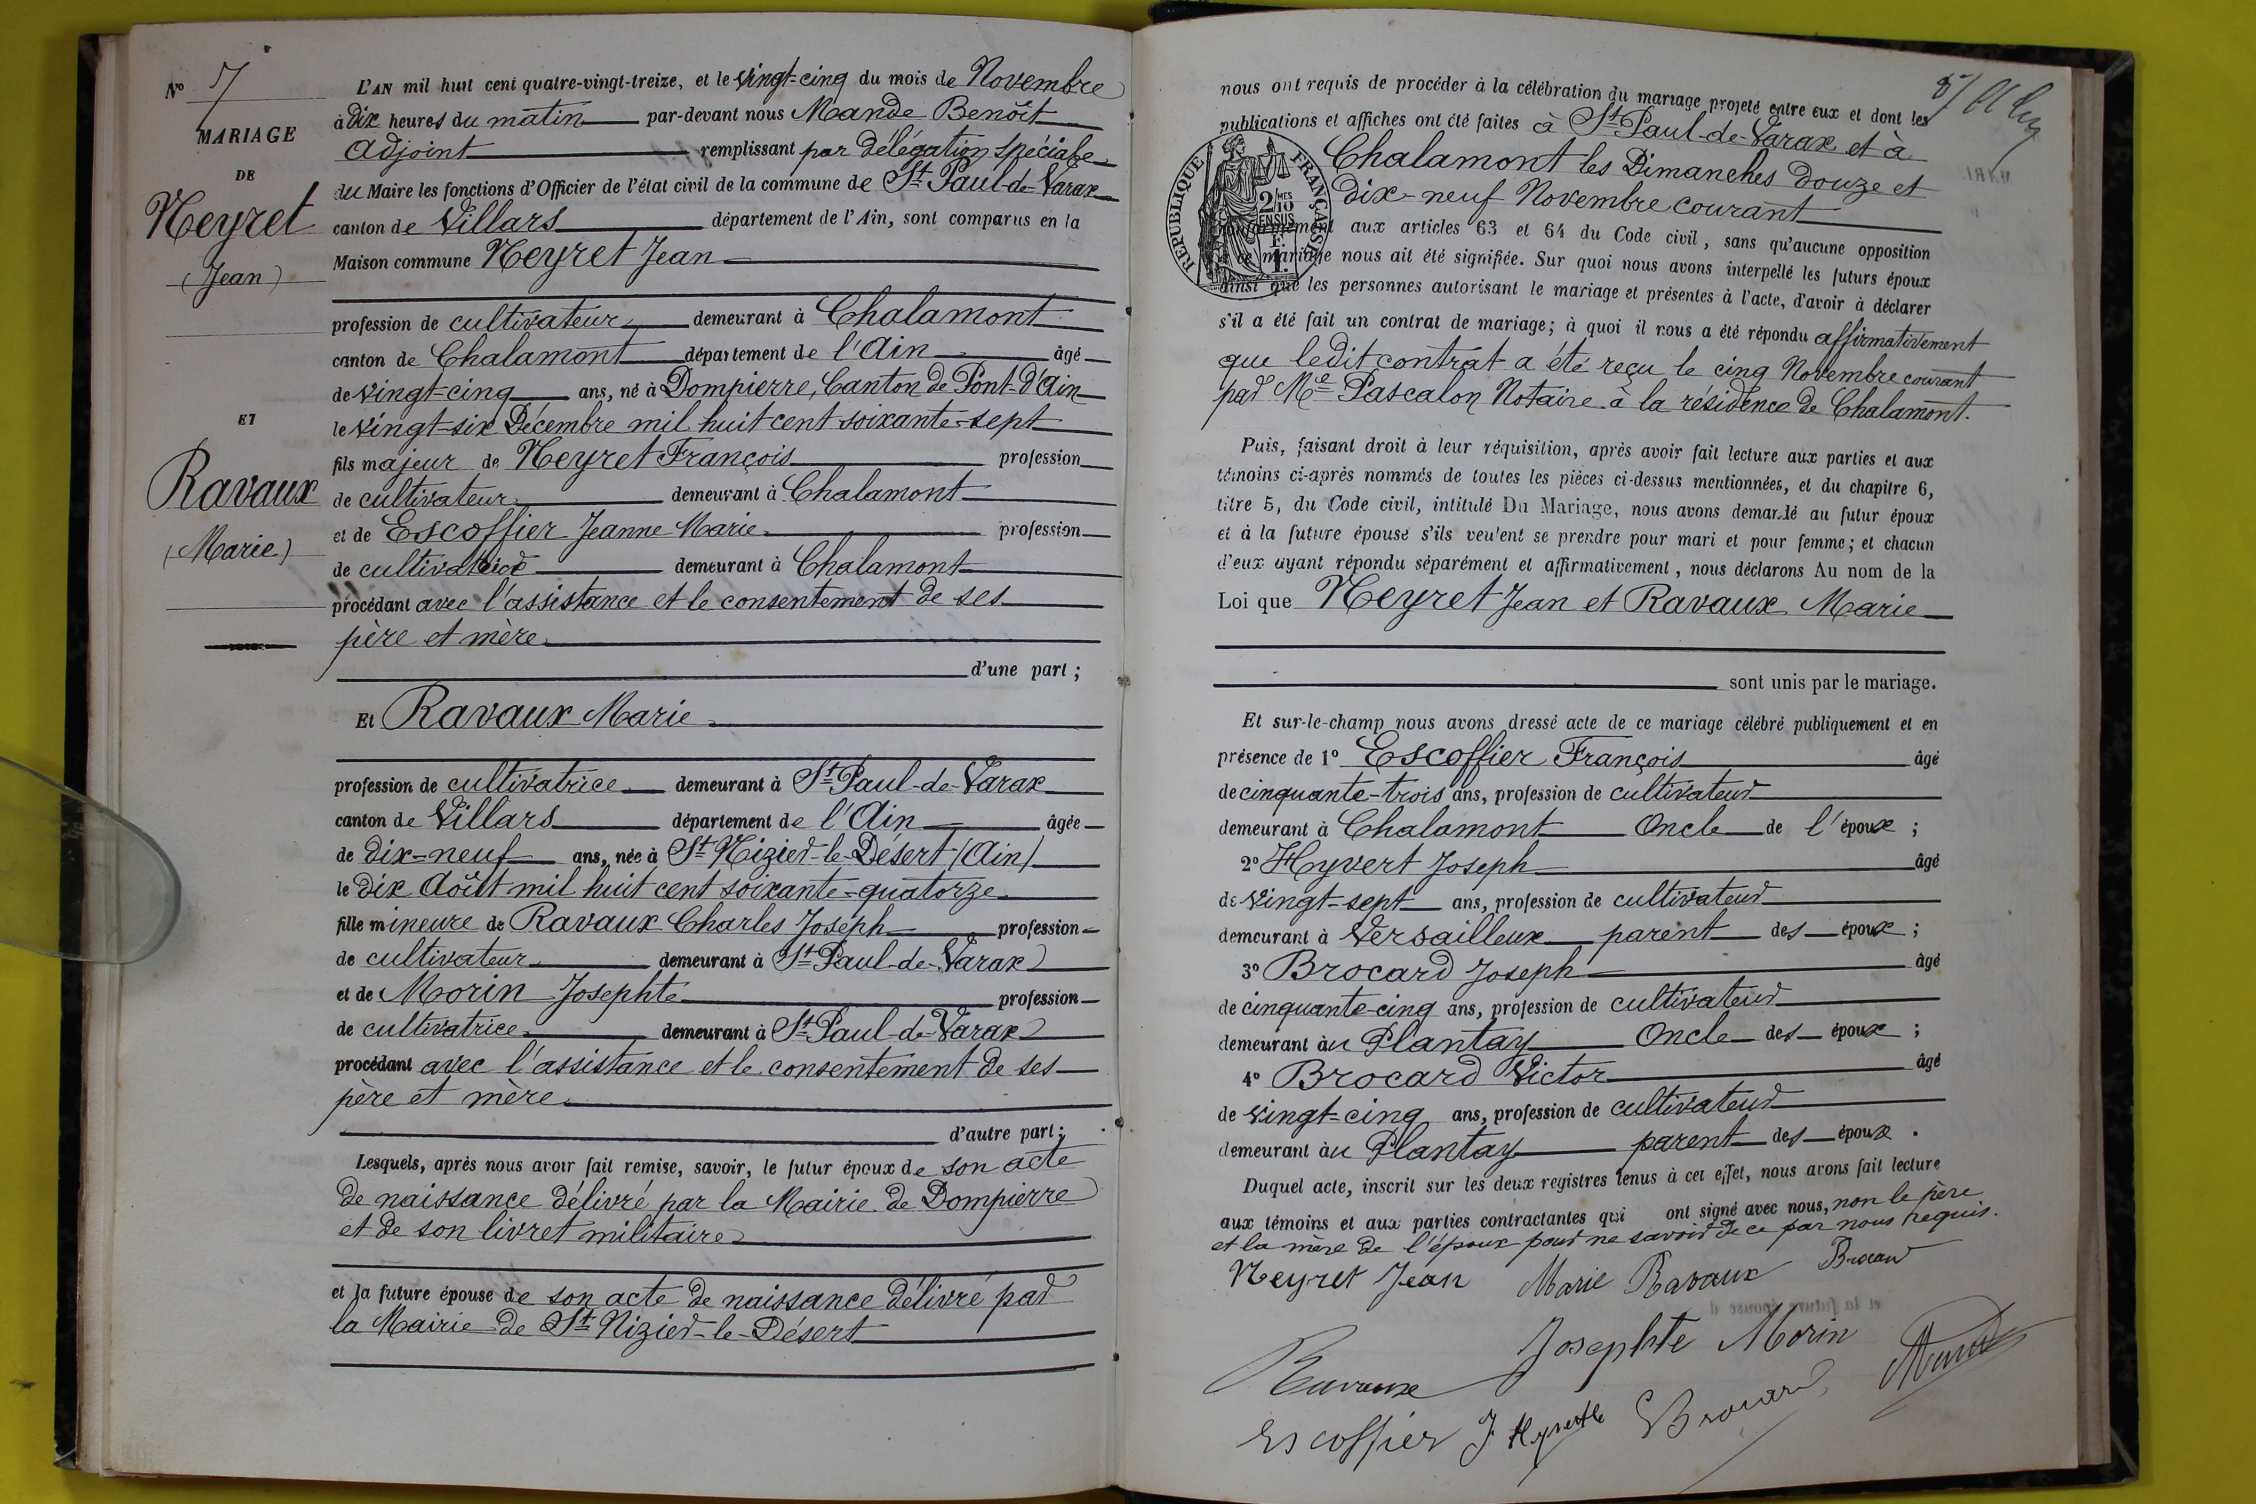 N° 7
MARIAGE
DE
Neyret
(Jean)
ET
Ravaux
(Marie)
L'AN mil huit cent quatre-vingt-treize, et le vingt-cinq du mois de Novembre
à dix heures du matin par-devant nous Mande Benoît
Adjoint remplissant par délégation spéciale
du Maire les fonctions d'Officier de l'état civil de la commune de St Paul-de-Varax
canton de Villars département de l'Ain, sont comparus en la
Maison commune Neyret Jean
profession de cultivateur demeurant à Chalamont
canton de Chalamont département de l'Ain âgé
de vingt-cinq ans, né à Dompierre, Canton de Pont-d'Ain
le vingt-six Décembre mil huit cent soixante-sept
fils majeur de Neyret François profession
de cultivateur demeurant à Chalamont
et de Escoffier Jeanne Marie profession
de cultivatrice demeurant à Chalamont
procédant avec l'assistance et le consentement de ses
père et mère
d'une part ;
Et Ravaux Marie
profession de cultivatrice demeurant à St Paul-de-Varax
canton de Villars département de l'Ain âgée
de dix-neuf ans, née à St Nizier-le-Désert (Ain)
le dix Août mil huit cent soixante-quatorze
fille mineure de Ravaux Charles Joseph profession
de cultivateur demeurant à St Paul-de-Varax
et de Morin Josephte profession
de cultivatrice demeurant à St Paul-de-Varax
procédant avec l'assistance et le consentement de ses
père et mère
d'autre part ;
Lesquels, après nous avoir fait remise, savoir, le futur époux de son acte
de naissance délivré par la Mairie de Dompierre
et de son livret militaire
et la future épouse de son acte de naissance délivré par
la Mairie de St Nizier-le-Désert
nous ont requis de procéder à la célébration du mariage projeté entre eux et dont les
publications et affiches ont été faites à St Paul-de-Varax et à
Chalamont les Dimanches douze et
dix-neuf Novembre courant
RÉPUBLIQUE FRANÇAISE
2/10MES
EN SUS
1F.
conformément aux articles 63 et 64 du Code civil, sans qu'aucune opposition
à ce mariage nous ait été signifiée. Sur quoi nous avons interpellé les futurs époux
ainsi que les personnes autorisant le mariage et présentes à l'acte, d'avoir à déclarer
s'il a été fait un contrat de mariage; à quoi il nous a été répondu affirmativement
que ledit contrat a été reçu le cinq Novembre courant
par Me Pascalon Notaire à la résidence de Chalamont.
Puis, faisant droit à leur réquisition, après avoir fait lecture aux parties et aux
témoins ci-après nommés de toutes les pièces ci-dessus mentionnées, et du chapitre 6,
titre 5, du Code civil, intitulé Du Mariage, nous avons demandé au futur époux
et à la future épouse s'ils veulent se prendre pour mari et pour femme; et chacun
d'eux ayant répondu séparément et affirmativement, nous déclarons Au nom de la
Loi que Neyret Jean et Ravaux Marie
sont unis par le mariage.
Et sur-le-champ nous avons dressé acte de ce mariage célébré publiquement et en
présence de 1° Escoffier François âgé
de cinquante-trois ans, profession de cultivateur
demeurant à Chalamont Oncle de l'époux ;
2° Hyvert Joseph âgé
de vingt-sept ans, profession de cultivateur
demeurant à Versailleux parent des époux ;
3° Brocard Joseph âgé
de cinquante-cinq ans, profession de cultivateur
demeurant au Plantay Oncle des époux ;
4° Brocard Victor âgé
de vingt-cinq ans, profession de cultivateur
demeurant au Plantay parent des époux .
Duquel acte, inscrit sur les deux registres tenus à cet effet, nous avons fait lecture
aux témoins et aux parties contractantes qui ont signé avec nous, non le père
et la mère de l'époux pour ne savoir de ce par nous requis.
Neyret Jean Marie Ravaux
Josephte Morin
Ravaux
Escoffier Brocard